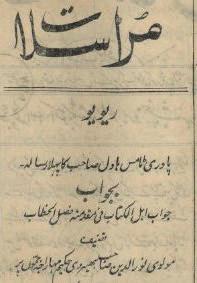 مراسلات
ریویو
پادری ٹامس ہاول صاحب کا پہلا رسالہ
بجواب
جواب اہل الکتاب فی مقدمہ فصل الخطاب
تصنیف
مولوی نور الدین صاحب بھیروی حکیم مہاراجہ جموں پر